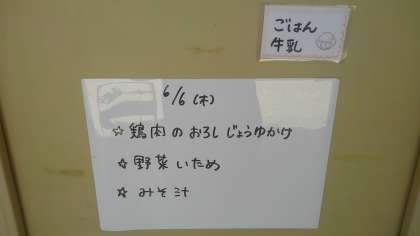 ごはん
牛乳
6/6(木)
☆鶏肉のおろしじょうゆかけ
☆野菜いため
☆みそ汁